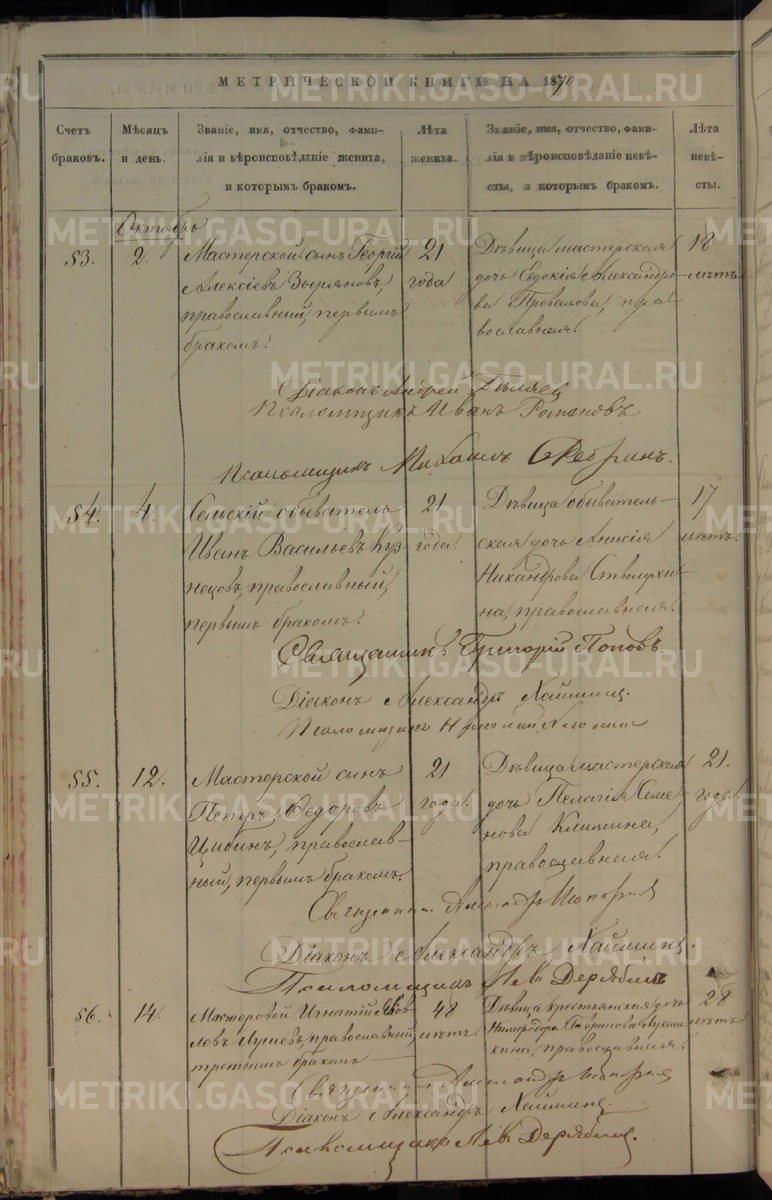 МЕТРИЧЕСКОЙ КНИГИ НА 1870
Счетъ браковъ.
Мѣсяцъ и день.
Званіе, имя, отчество, фами-
лія и вѣроисповѣданіе жениха,
и которымъ бракомъ.
Лѣта жениха.
Званіе, имя, отчество, фами-
лія и вѣроисповѣданіе невѣ-
сты, а которымъ бракомъ.
Лѣта невѣ-
сты.
Октябрь
53.
2.
Мастерской сынъ Георгій
Алексіевъ Зыряновъ,
православный, первымъ
бракомъ.
21
года
Дѣвица мастерская
дочь Евдокія Александро-
ва Провалова, пра-
вославная.
18
лѣтъ
Діаконъ Андрей
Псаломщикъ Иванъ Романовъ
Псаломщикъ Михаилъ
54.
4.
Сельскій обыватель
Иванъ Васильевъ Куз-
нецовъ, православный,
первымъ бракомъ.
21
года.
Дѣвица обыватель-
ская дочь Анисія
Никандрова
православная.
17
лѣтъ.
Священникъ Григорій Поповъ.
Діаконъ Александръ
Псаломщикъ Николай
55.
12.
Мастерской сынъ
Петръ Федоровъ
Цыбинъ, православ-
ный, первымъ бракомъ.
21
года.
Дѣвица мастерская
дочь Пелагія Семе-
нова
православная.
21.
года.
Священникъ Александръ
Діаконъ Александръ
Псаломщикъ Левъ Дерябинъ
56.
14.
Мастеровой Игнатій Яков-
левъ православный,
третьимъ бракомъ
48
лѣтъ.
Дѣвица крестьянская дочь
Гаврилова
православная.
28
лѣтъ
Священникъ Александръ
Діаконъ Александръ
Псаломщикъ Левъ Дерябинъ.
METRIKI.GASO-URAL.RU